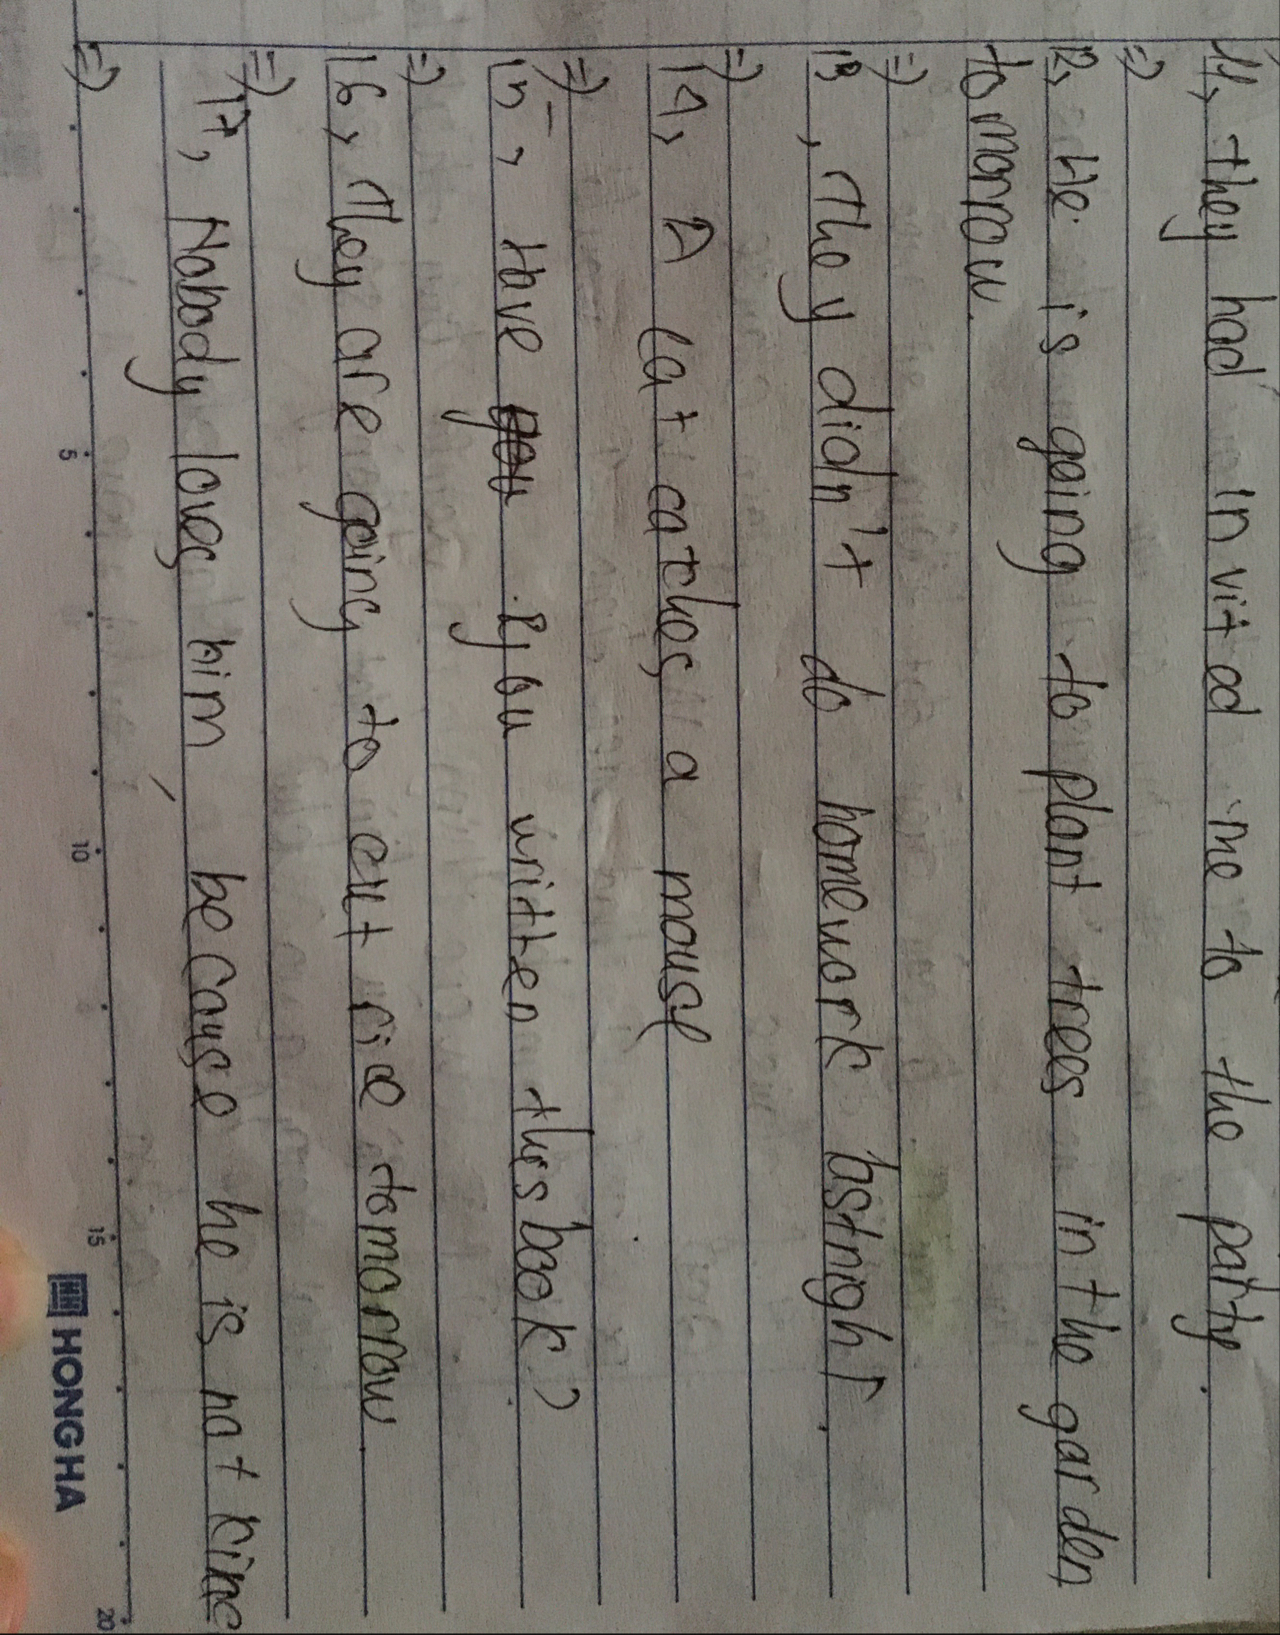 11, they had invited me to the party.
=>
12, He is going to plant trees in the garden
tomorrow.
=>
13, They didn't do homework lastnight.
=>
14, A cat catches a mouse
=>
15, Have you written this book?
=>
16, They are going to cut rice tomorrow.
=>
17, Nobody loves him because he is not kind
=>
5 10 15 20
HONG HA